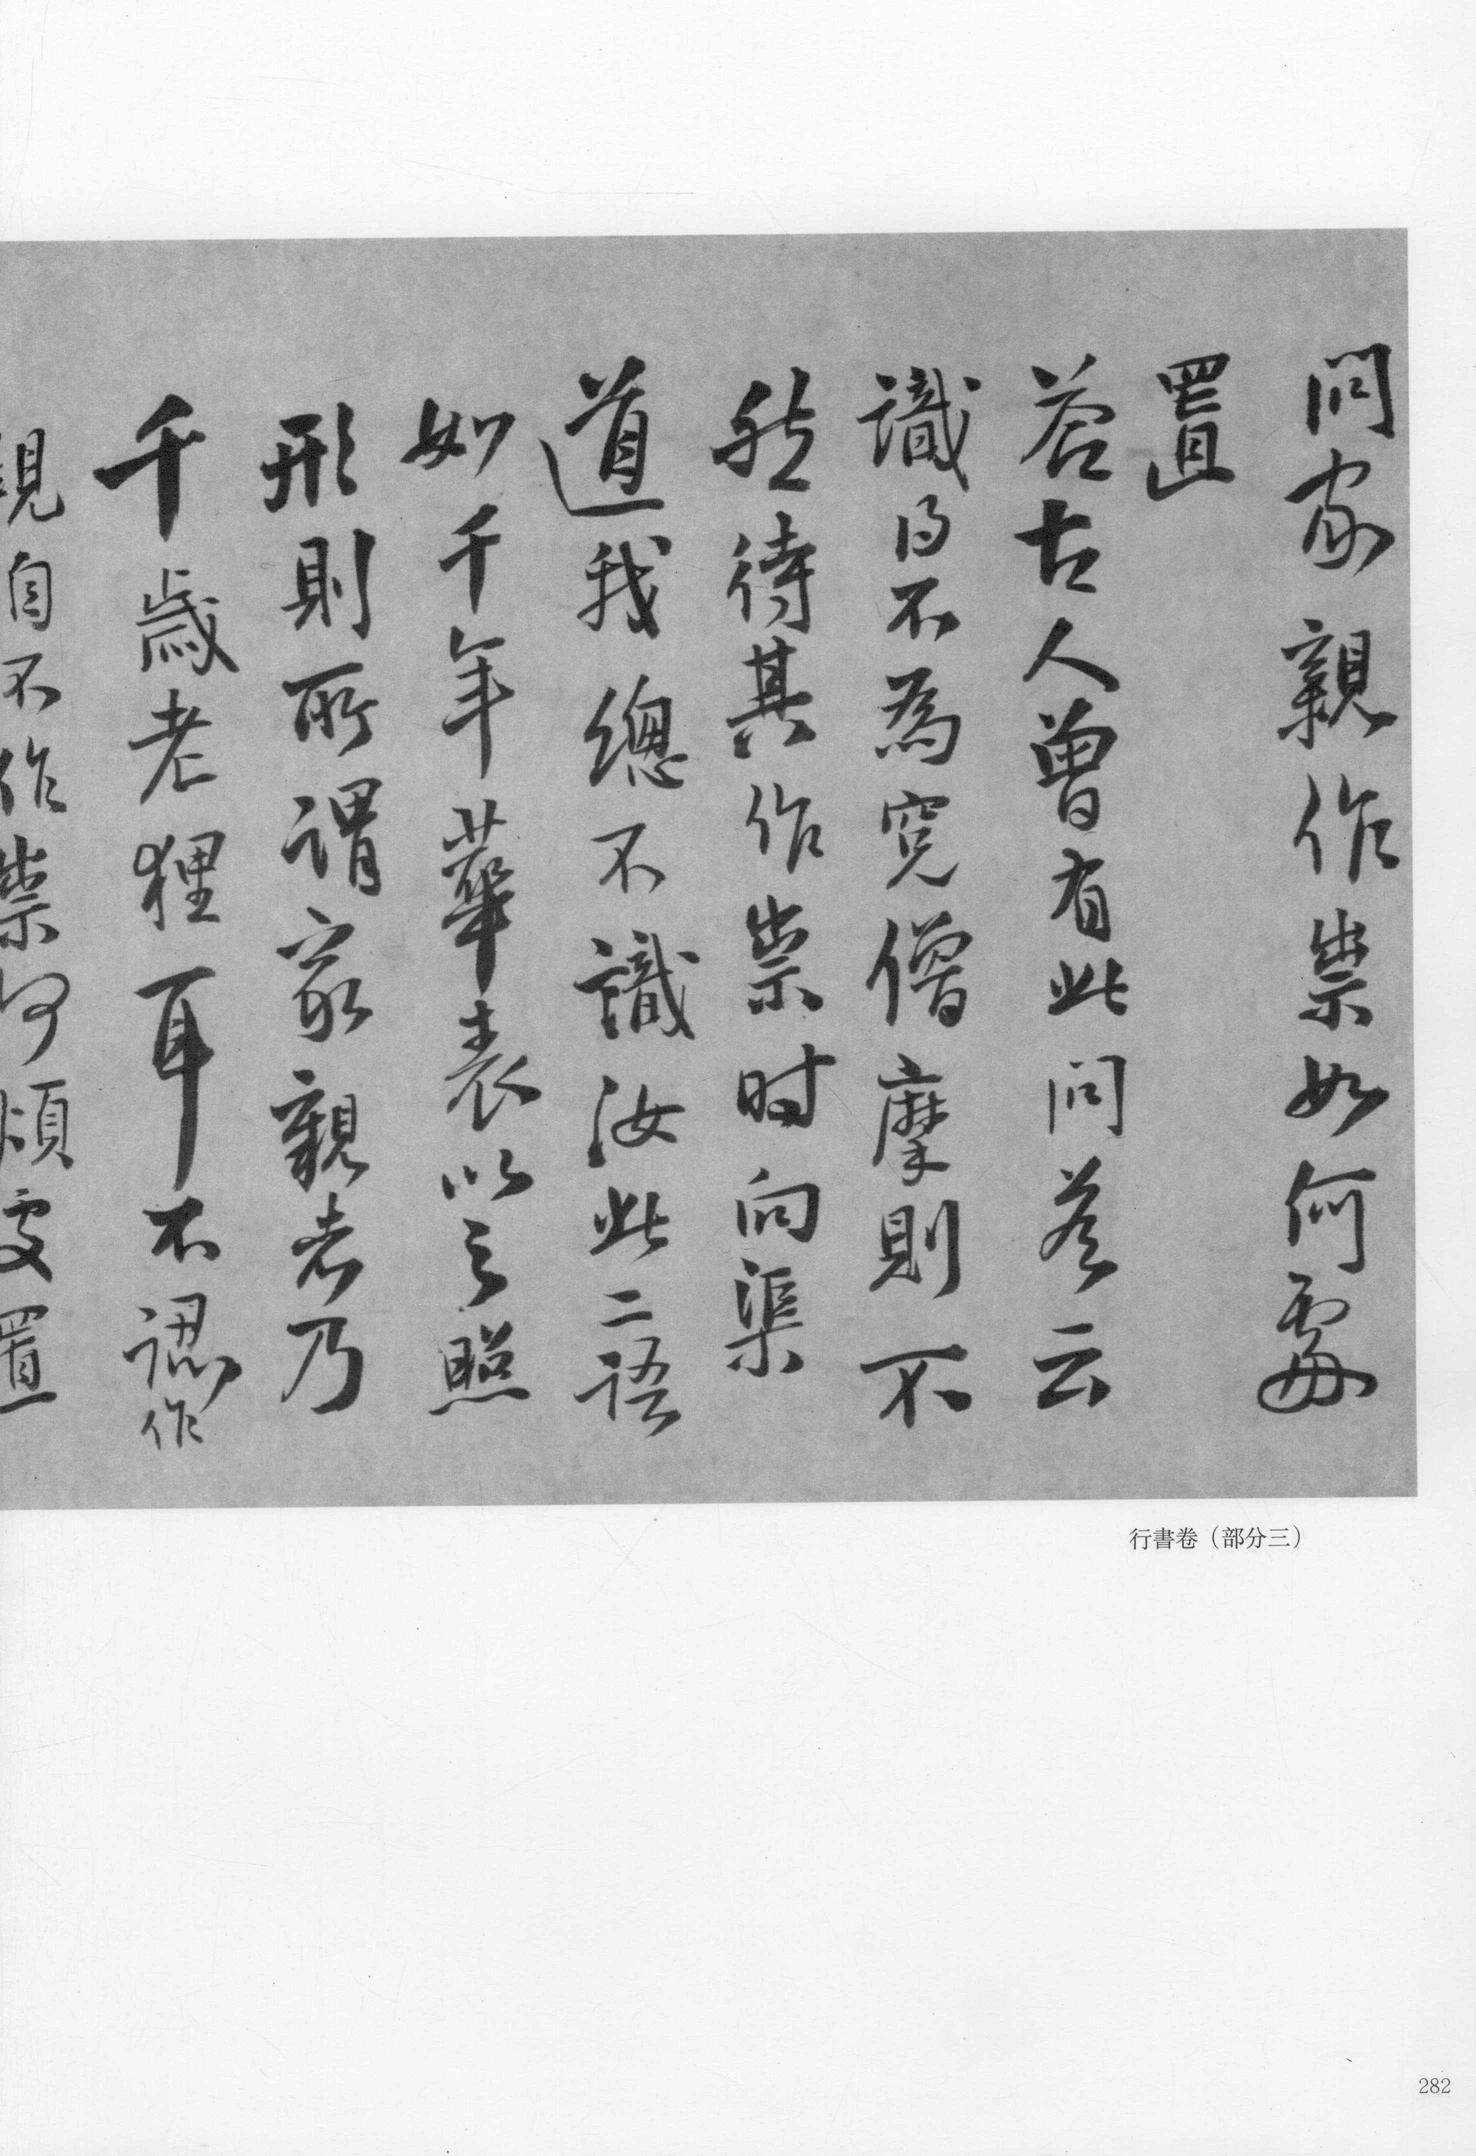 問家親作祟如何處
置
答古人曾有此問答云
識得不為冤僧摩則不
然待其作祟时向渠
道我總不識汝此二語
如千年華表以之照
形則所謂家親者乃
千歲老狸耳不認作
親自不作祟何煩處置
行書卷（部分三）
282